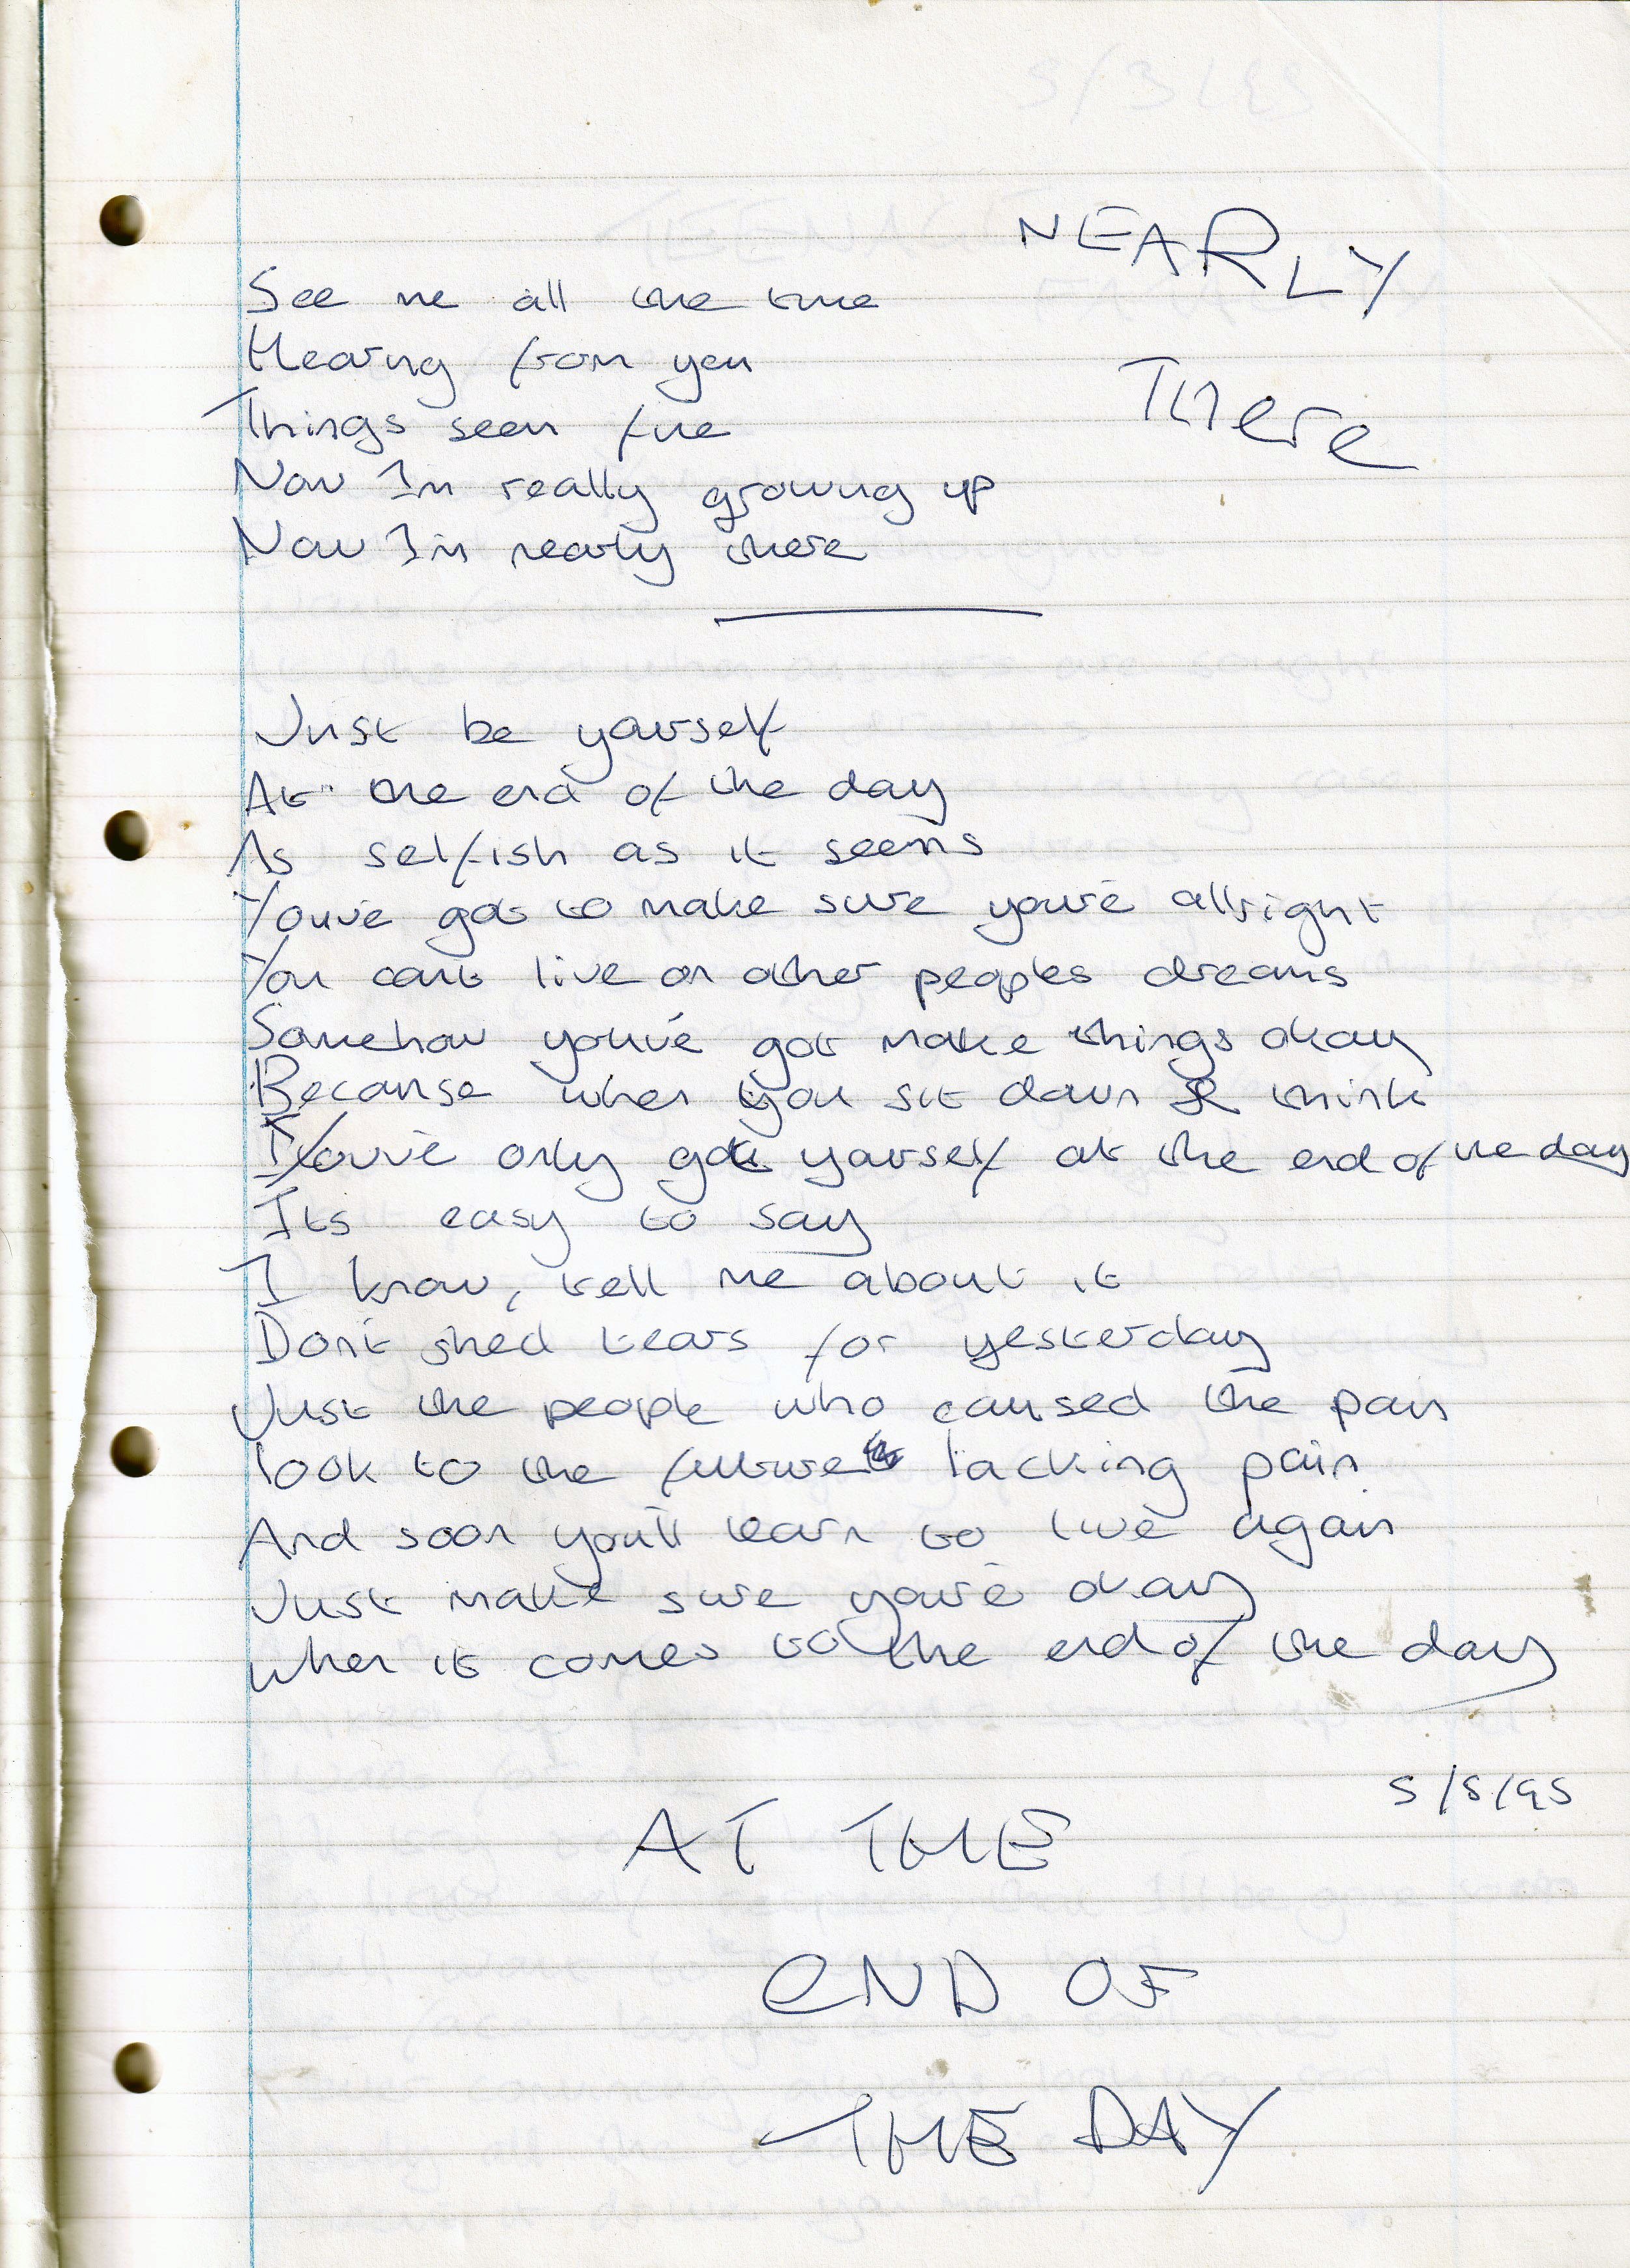 NEARLY
There
See me all the time
Hearing from you
Things seem fine
Now Im really growing up
Now Im nearly there
Just be yourself
At the end of the day
As selfish as it seems
You've got to make sure you're allright
You cant live on other peoples dreams
Somehow you've got make things okay
Because when you sit down & think
You've only got yourself at the end of the day
Its easy to say
I know, tell me about it
Don't shed tears for yesterday
Just the people who caused the pain
look to the future lacking pain
And soon you'll learn to live again
Just make sure you're okay
When it comes to the end of the day
5/5/95
AT THE
END OF
THE DAY